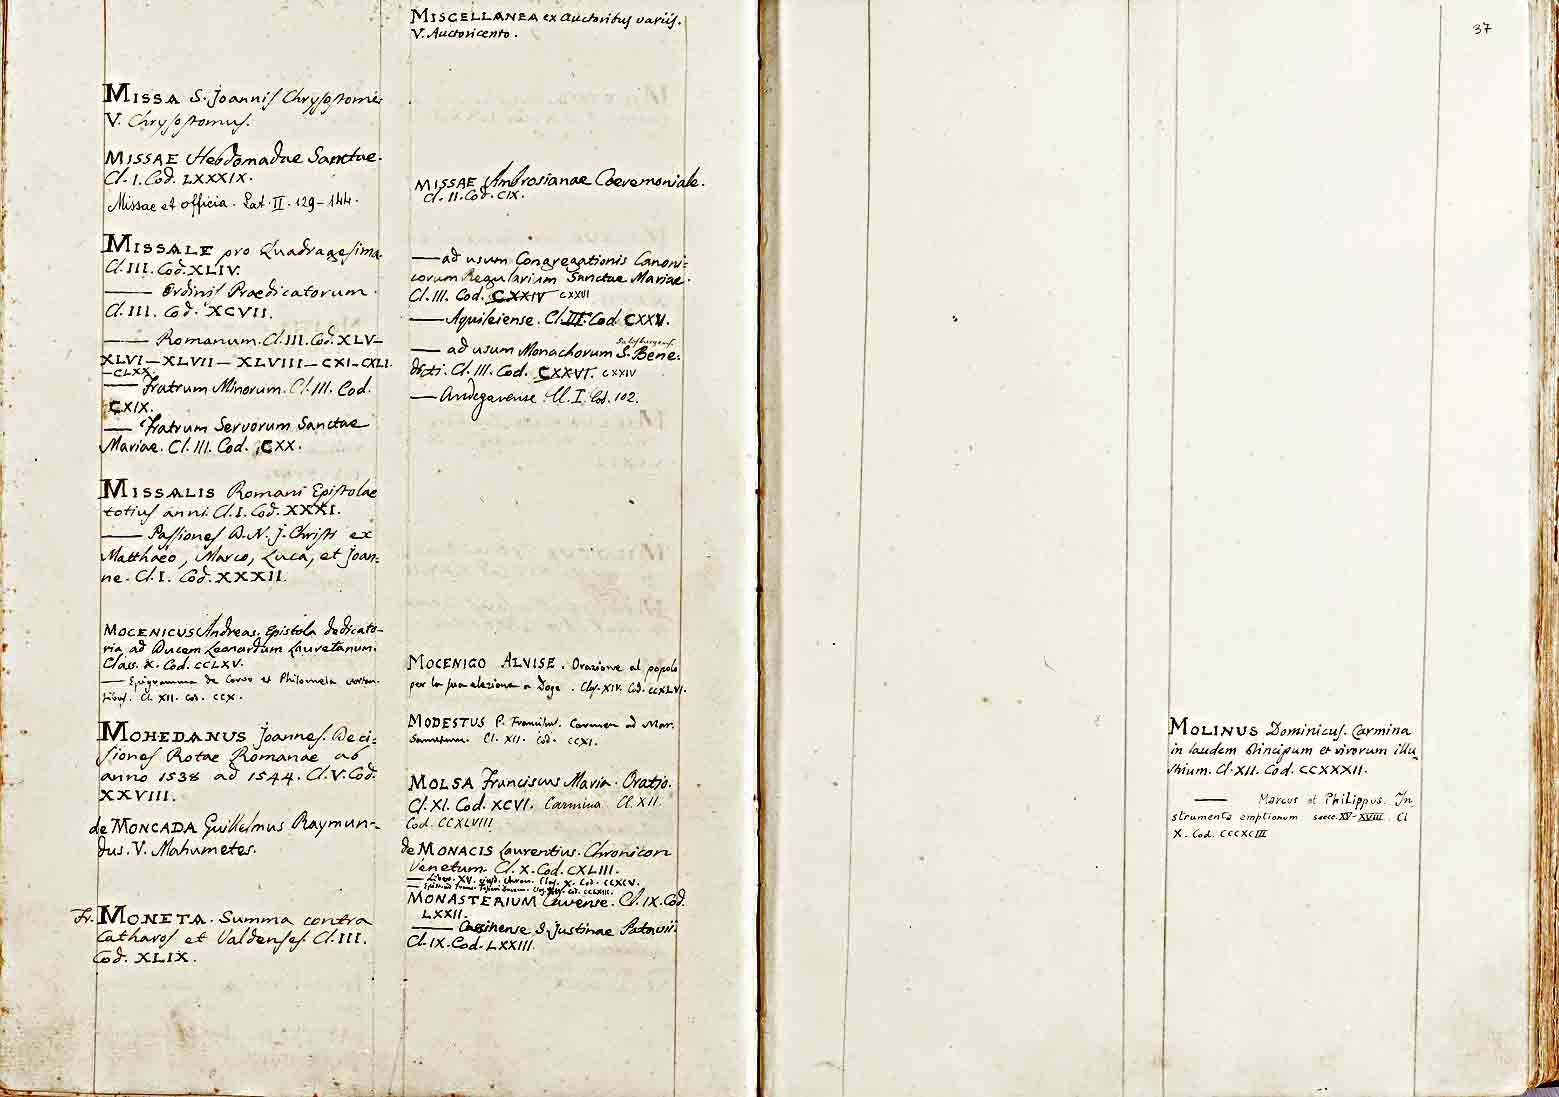 MISSA S. Joannis Chrysostomi
V. Chrysostomus.
MISSAE Hebdomadae Sanctae.
Cl. I. Cod. LXXXIX.
Missae et officia. Lat. II. 129-144.
MISSALE pro Quadragesima
Cl. III. Cod. XLIV.
—— Ordinis Praedicatorum.
Cl. III. Cod. XCVII.
—— Romanum. Cl. III. Cod. XLV—
XLVI—XLVII—XLVIII—CXI—CXLI
—CLXX.
—— Fratrum Minorum. Cl. III. Cod.
CXIX.
—— Fratrum Servorum Sanctae
Mariae. Cl. III. Cod. CXX.
MISSALIS Romani Epistolae
totius anni. Cl. I. Cod. XXXI.
—— Passiones D. N. J. Christi ex
Matthaeo, Marco, Luca, et Joan=
ne. Cl. I. Cod. XXXII.
MOCENICUS Andreas. Epistola dedicato-
ria ad Ducem Leonardum Lauretanum.
Class. X. Cod. CCLXV.
—— Epigramma de Corvo et Philomela
Cl. XII. Cod. CCX.
MOHEDANUS Joannes. Deci=
siones Rotae Romanae ab
anno 1538 ad 1544. Cl. V. Cod.
XXVIII.
de MONCADA Guillelmus Raymun=
dus. V. Mahumetes.
Fr. MONETA. Summa contra
Catharos et Valdenses. Cl. III.
Cod. XLIX.
MISCELLANEA ex Auctoribus variis.
V. Auctoricento.
MISSAE Ambrosianae Coeremoniale.
Cl. II. Cod. CIX.
—— ad usum Congregationis Canoni=
corum Regularium Sanctae Mariae.
Cl. III. Cod. CXXIV CXXVI
—— Aquileiense. Cl. III. Cod. CXXV.
—— ad usum Monachorum S. Bene=
dicti. Cl. III. Cod. CXXVI. CXXIV
—— Andegavense. Cl. I. Cod. 102.
MOCENIGO ALVISE. Orazione al popolo
per la sua elezione a Doge. Clas. XIV. Cod. CCXLVI.
MODESTUS P. Francisus. Carmen ad Mar.
Sanutum. Cl. XII. Cod. CCXI.
MOLSA Franciscus Maria. Oratio.
Cl. XI. Cod. XCVI. Carmina Cl. XII.
Cod. CCXLVIII
de MONACIS Laurentius. Chronicon
Venetum. Cl. X. Cod. CXLIII.
—— Liber XV ejusd. Chron. Clas. X. Cod. CCXCV.
MONASTERIUM Cavense. Cl. IX. Cod.
LXXII.
—— Cassinense S. Justinae Patavii
Cl. IX. Cod. LXXIII.
37
MOLINUS Dominicus. Carmina
in laudem Principum et virorum illu=
strium. Cl. XII. Cod. CCXXXII.
—— Marcus et Philippus. In
strumenta emptionum saecc. XV-XVIII. Cl
X. Cod. CCCXCIII